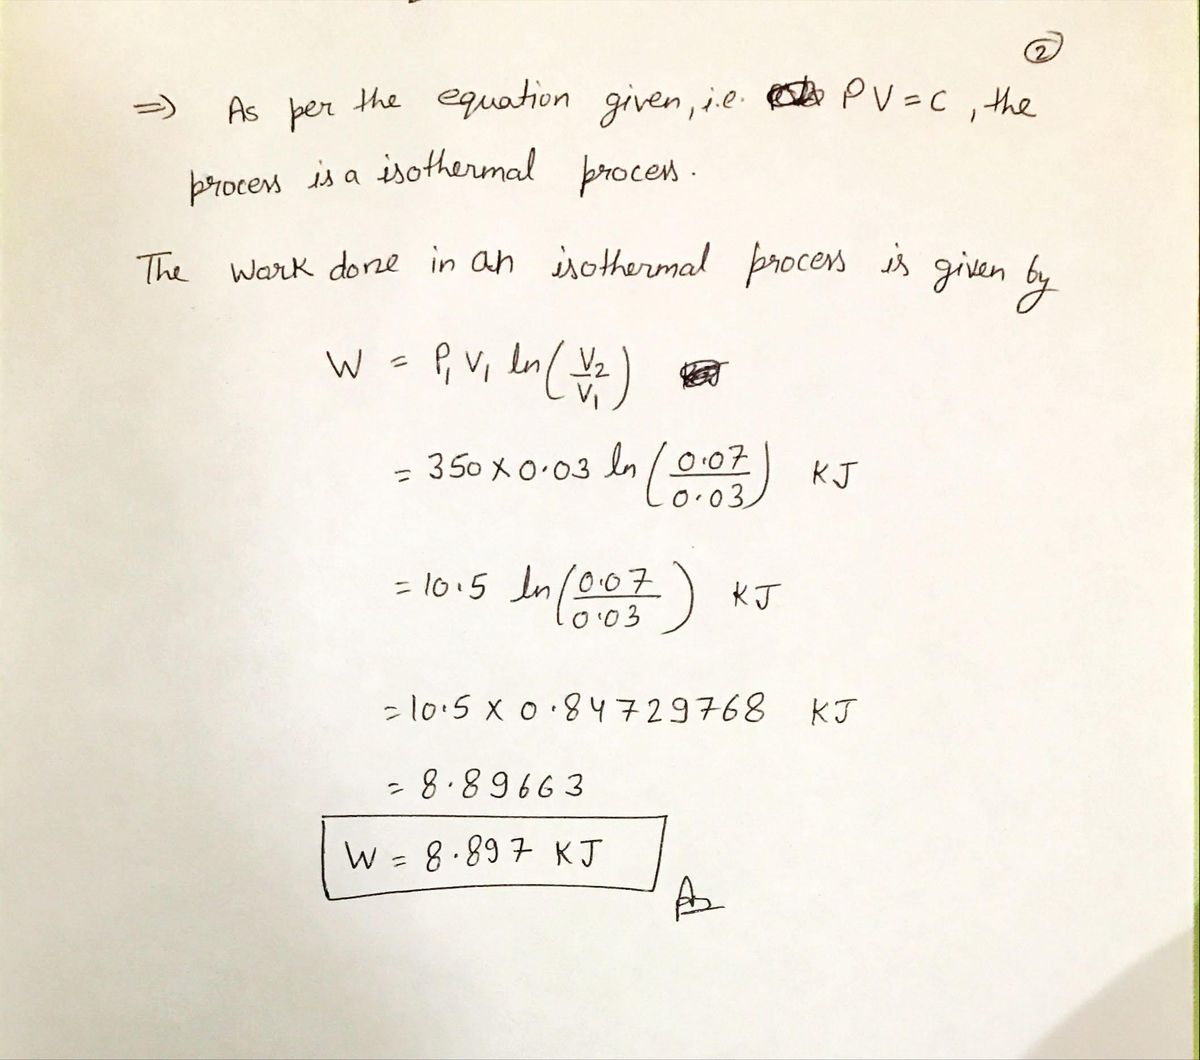 ②
⇒ As per the equation given, i.e. PV = C, the
process is a isothermal process.
The work done in an isothermal process is given by
W = P₁ V₁ ln(V₂/V₁)
= 350 × 0.03 ln(0.07/0.03) KJ
= 10.5 ln(0.07/0.03) KJ
= 10.5 × 0.84729768 KJ
= 8.89663
W = 8.897 KJ